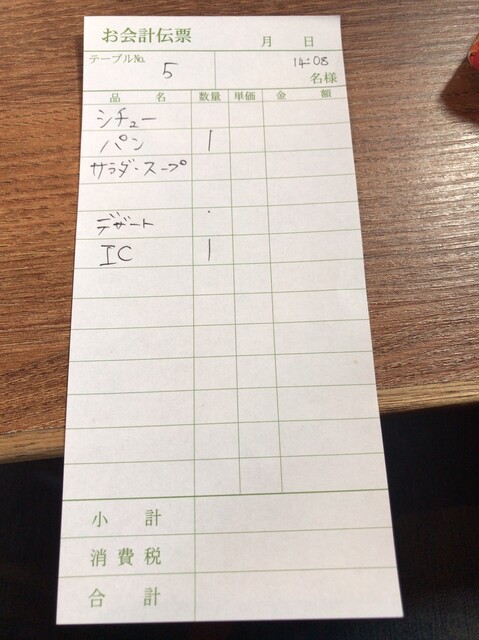 お会計伝票 月 日
テーブルNo. 5 14:08 名様
品 名 数量 単価 金 額
シチュー
パン 1
サラダ・スープ
デザート
IC 1
小 計
消費税
合 計